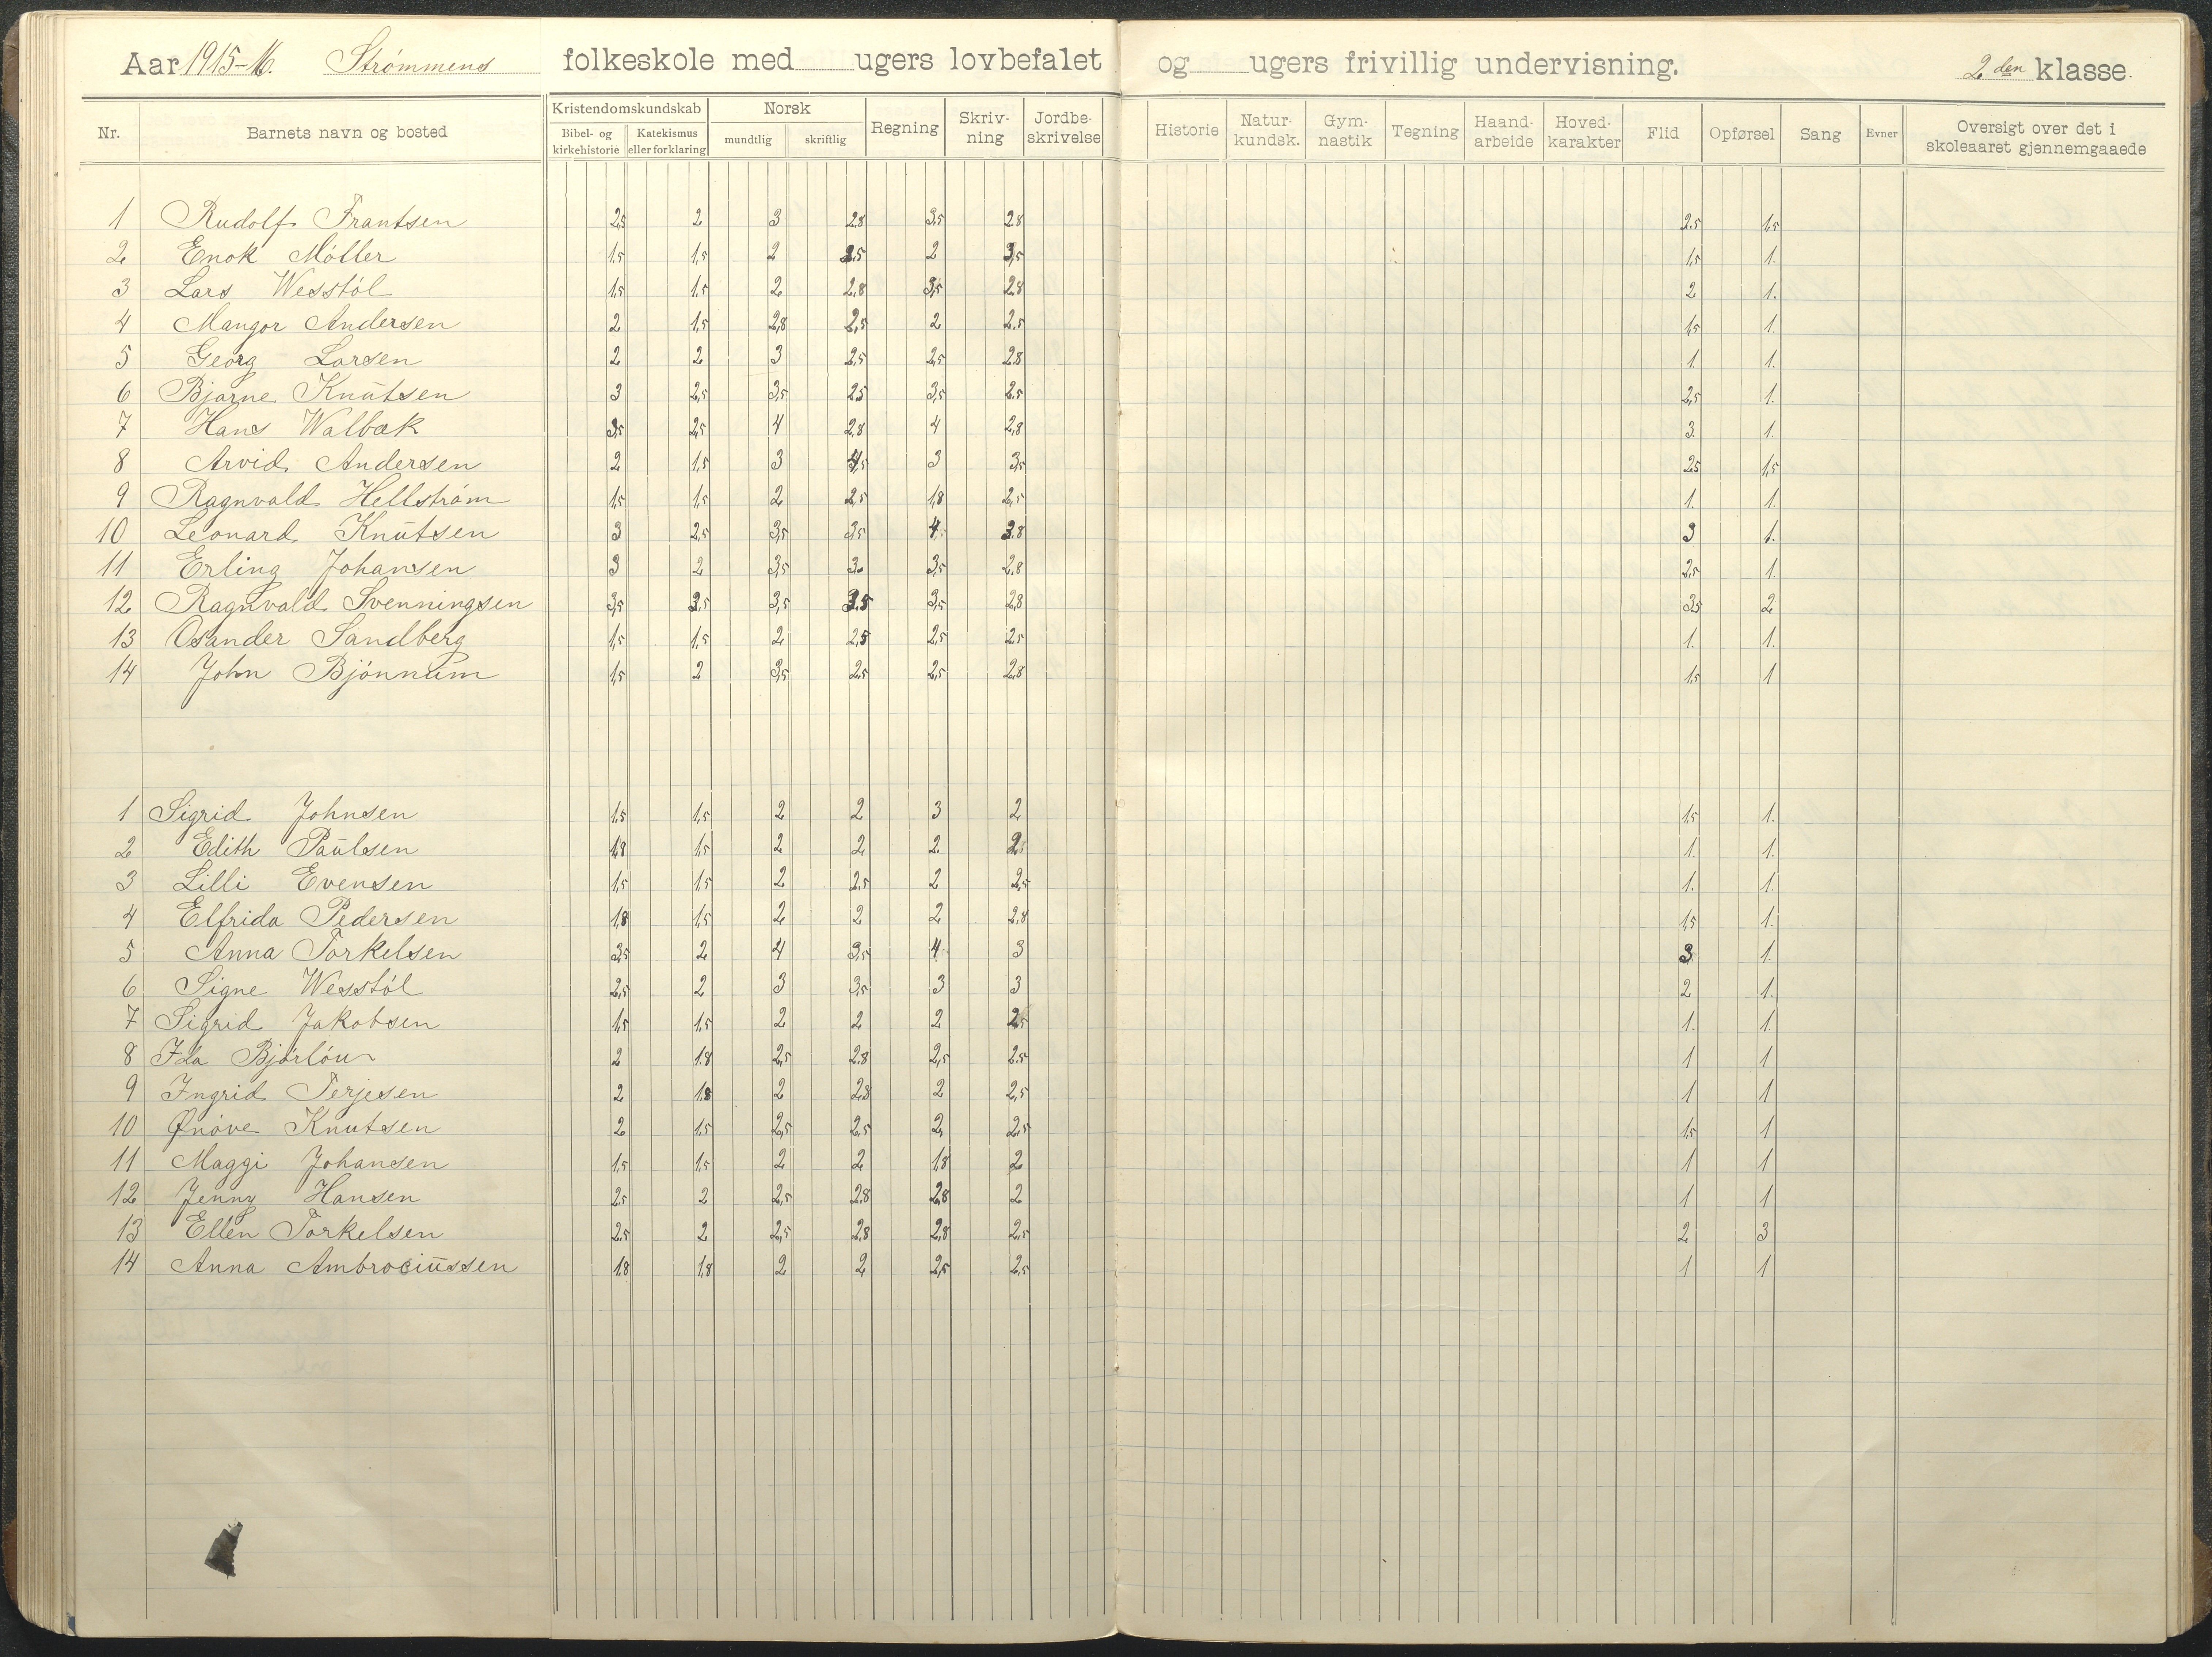 Aar 1915-16. Strømmens folkeskole med ugers lovbefalet og ugers frivillig undervisning. 2den klasse.
Nr. Barnets navn og bosted Kristendomskundskab Bibel- og kirkehistorie Katekismus eller forklaring Norsk mundtlig skriftlig Regning Skriv-ning Jordbe-skrivelse Historie Natur-kundsk. Gym-nastik Tegning Haand-arbeide Hoved-karakter Flid Opførsel Sang Evner Oversigt over det i skoleaaret gjennemgaaede
1 Rudolf Frantsen 2,5 2 3 2,8 3,5 2,8 2,5 1,5
2 Enok Móller 1,5 1,5 2 2,5 2 3,5 1,5 1.
3 Lars Wesstól 1,5 1,5 2 2,8 3,5 2,8 2 1.
4 Mangor Andersen 2 1,5 2,8 2,5 2 2,5 1,5 1.
5 Georg Larsen 2 2 3 2,5 2,5 2,8 1. 1.
6 Bjarne Knutsen 3 2,5 3,5 2,5 3,5 2,5 2,5 1.
7 Hans Walbæk 3,5 2,5 4 2,8 4 2,8 3. 1.
8 Arvid Andersen 2 1,5 3 4,5 3 3,5 2,5 1,5
9 Ragnvald Hellstróm 1,5 1,5 2 2,5 1,8 2,5 1. 1.
10 Leonard Knutsen 3 2,5 3,5 3,5 4. 3,8 3 1.
11 Erling Johansen 3 2 3,5 3. 3,5 2,8 2,5 1.
12 Ragnvald Svenningsen 3,5 3,5 3,5 3,5 3,5 2,8 3,5 2
13 Osander Sandberg 1,5 1,5 2 2,5 2,5 2,5 1. 1.
14 John Bjónnum 1,5 2 3,5 2,5 2,5 2,8 1,5 1
1 Sigrid Johnsen 1,5 1,5 2 2 3 2 1,5 1.
2 Edith Paulsen 1,8 1,5 2 2 2. 2 1. 1.
3 Lilli Evensen 1,5 1,5 2 2,5 2 2,5 1. 1.
4 Elfrida Pedersen 1,8 1,5 2 2 2 2,8 1,5 1.
5 Anna Torkelsen 3,5 2 4 3,5 4. 3 3 1.
6 Signe Wesstól 2,5 2 3 3,5 3 3 2 1.
7 Sigrid Jakobsen 1,5 1,5 2 2 2 2,5 1. 1.
8 Ida 2 1,8 2,5 2,8 2,5 2,5 1 1
9 Ingrid Terjesen 2 1,8 2 2,8 2 2,5 1 1
10 Ønóve Knutsen 2 1,5 2,5 2,5 2, 2,5 1,5 1
11 Maggi Johansen 1,5 1,5 2 2 1,8 2 1 1
12 Jenny Hansen 2,5 2 2,5 2,8 2,8 2 1 1
13 Ellen Torkelsen 2,5 2 2,5 2,8 2,8 2,5 2 3
14 Anna Ambrociussen 1,8 1,8 2 2 2,5 2,5 1 1